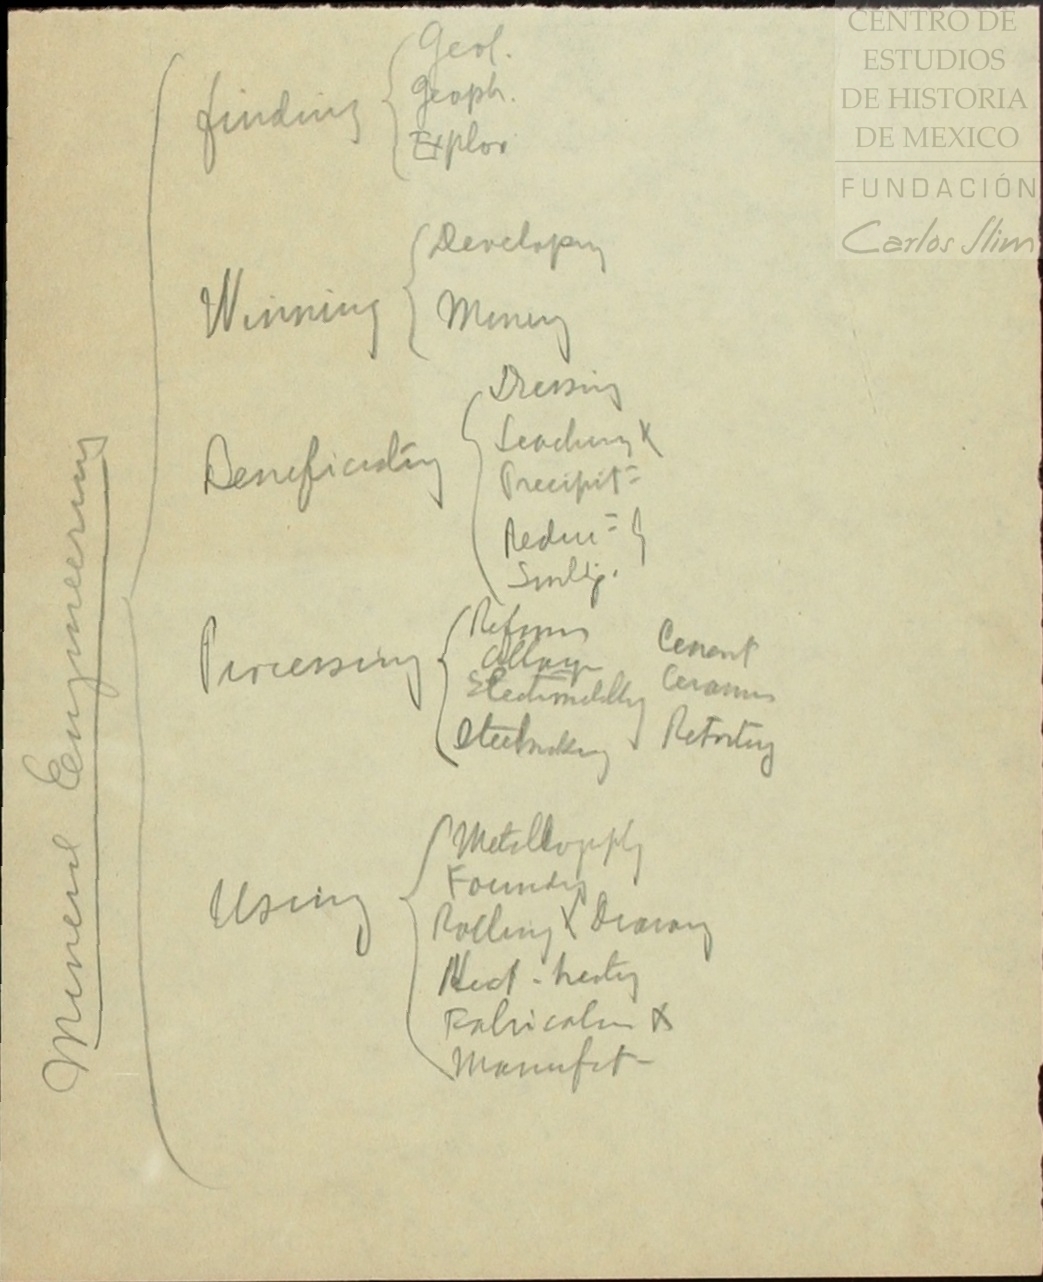 CENTRO DE
ESTUDIOS
DE HISTORIA
DE MEXICO
FUNDACIÓN
Carlos Slim
Mineral Engineering
finding
Geol.
Geoph.
Explor
Winning
Developing
Mining
Beneficiating
Dressing
Leaching X
Precipit=
Reduc=
Processing
Refining
Alloying
Electrometallurgy
Steelmaking
Cement
Ceramics
Retorting
Using
Metallography
Foundry
Rolling X Drawing
Heat-treating
Fabrication X
Manufct-